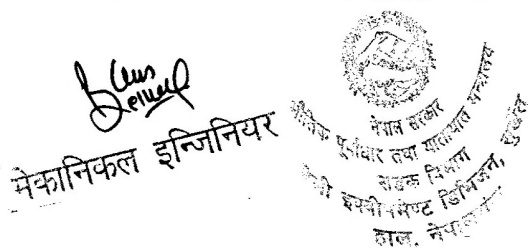 मेकानिकल इन्जिनियर
नेपाल सरकार
भौतिक पूर्वाधार तथा यातायात मन्त्रालय
सडक विभाग
इक्वीपमेण्ट डिभिजन,
हाल, नेपालगंज